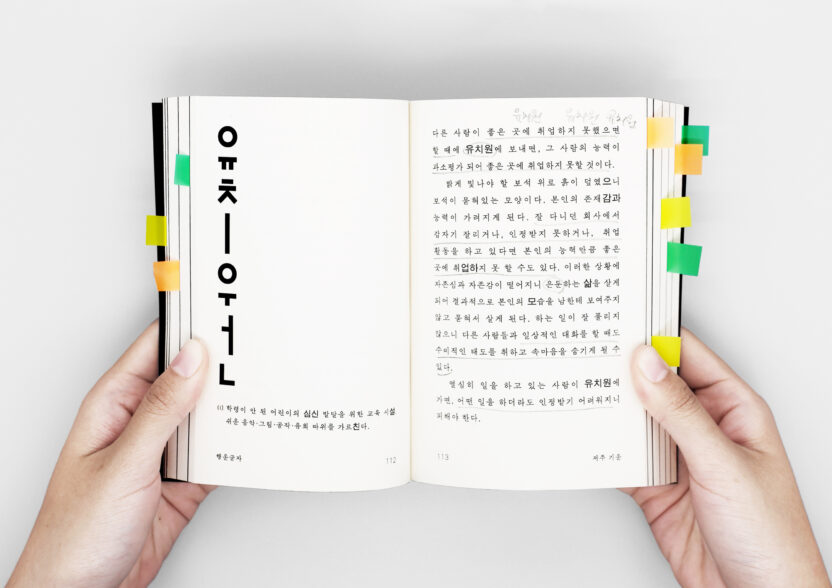 유치원
학령이 안 된 어린이의 심신 발달을 위한 교육 시설
쉬운 음악·그림·공작·유희 따위를 가르친다.
행운글자
112
유치원 유치원 유치원
다른 사람이 좋은 곳에 취업하지 못했으면
할 때에 유치원에 보내면, 그 사람의 능력이
과소평가 되어 좋은 곳에 취업하지 못할 것이다.
밝게 빛나야 할 보석 위로 흙이 덮였으니
보석이 묻혀있는 모양이다. 본인의 존재감과
능력이 가려지게 된다. 잘 다니던 회사에서
갑자기 잘리거나, 인정받지 못하거나, 취업
활동을 하고 있다면 본인의 능력만큼 좋은
곳에 취업하지 못 할 수도 있다. 이러한 상황에
자존심과 자존감이 떨어지니 은둔하는 삶을 살게
되어 결과적으로 본인의 모습을 남한테 보여주지
않고 묻혀서 살게 된다. 하는 일이 잘 풀리지
않으니 다른 사람들과 일상적인 대화를 할 때도
수비적인 태도를 취하고 속마음을 숨기게 될 수
있다.
열심히 일을 하고 있는 사람이 유치원에
가면, 어떤 일을 하더라도 인정받기 어려워지니
피해야 한다.
113
저주 기운